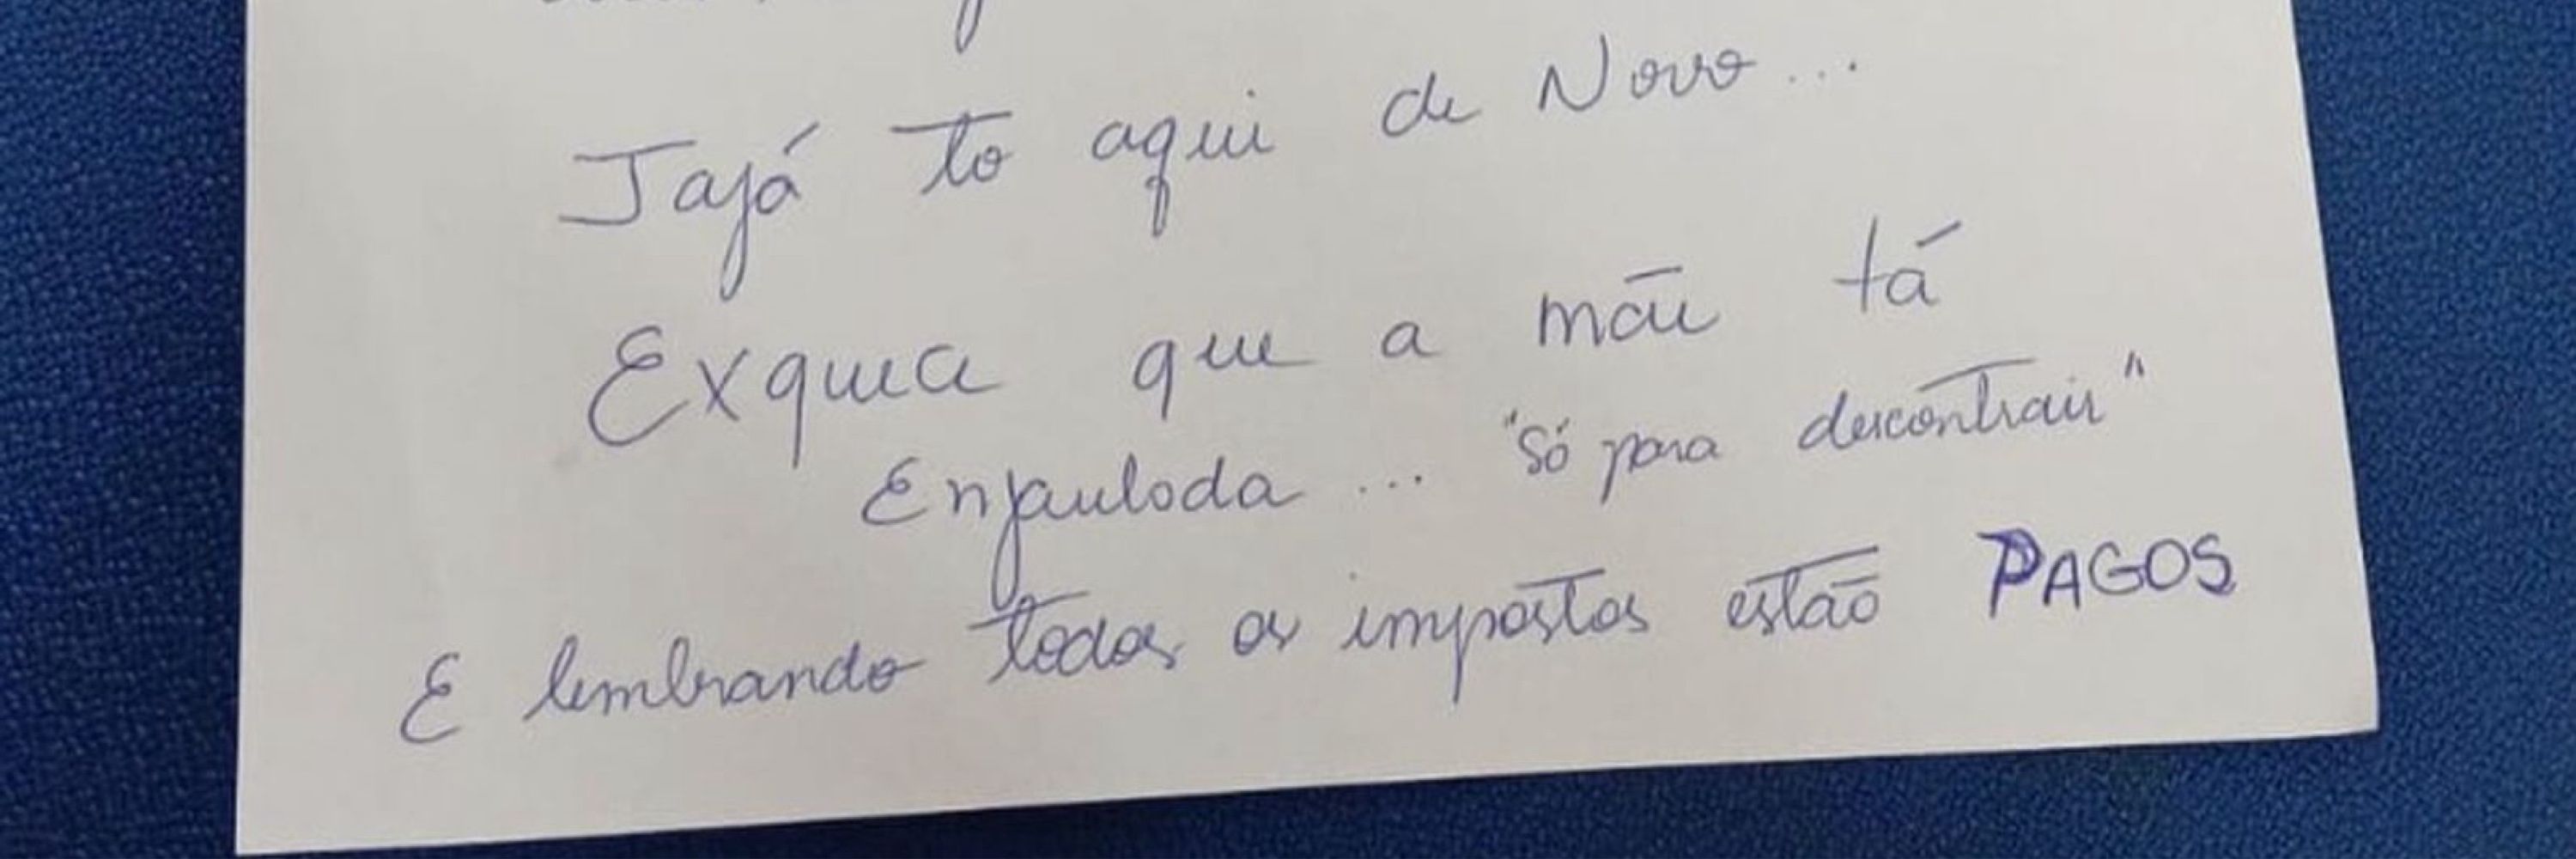 Jajá to aqui de Novo...
Exquca que a mãe tá
Enjaulada... "só para descontrair"
E lembrando todos os impostos estão PAGOS